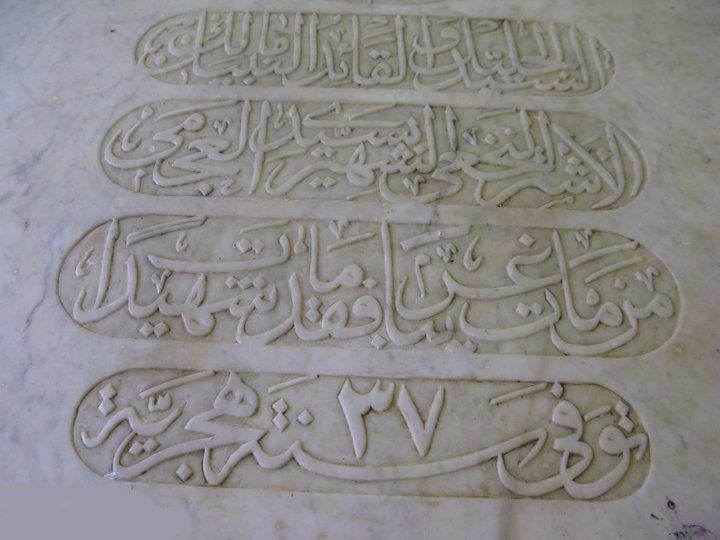 السيد الجليل والقائد النبيل مالك
الاشتر النخعي الشهير بسيدي العجمي
من مات غريبا فقد مات شهيدا
توفى سنة ٣٧ هجرية